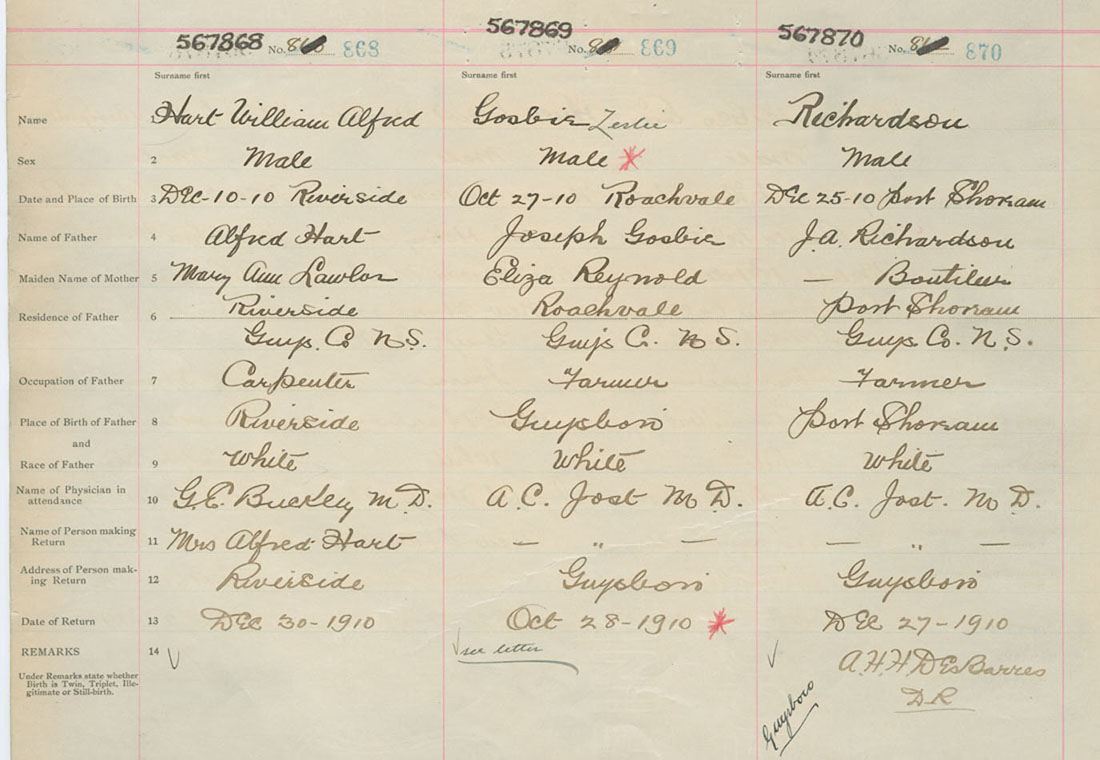 567868 No. 868
567869 No. 869
567870 No. 870
Surname first Surname first Surname first
Name 1 Hart William Alfred Gosbie Leslie Richardson
Sex 2 Male Male Male
Date and Place of Birth 3 Dec-10-10 Riverside Oct 27-10 Roachvale Dec 25-10 Port Shoream
Name of Father 4 Alfred Hart Joseph Gosbie J.A. Richardson
Maiden Name of Mother 5 Mary Ann Lawlor Eliza Reynold — Boutilier
Residence of Father 6 Riverside Roachvale Port Shoream
Guys. Co N.S. Guys Co. N S. Guys Co. N.S.
Occupation of Father 7 Carpenter Farmer Farmer
Place of Birth of Father 8 Riverside Guysboro Port Shoream
and
Race of Father 9 White White White
Name of Physician in
attendance 10 G.E. Buckley M.D. A.C. Jost M D. A.C. Jost. M D.
Name of Person making
Return 11 Mrs Alfred Hart — " — — " —
Address of Person mak-
ing Return 12 Riverside Guysboro Guysboro
Date of Return 13 Dec 30-1910 Oct 28-1910 Dec 27-1910
REMARKS 14 see letter A.H.H DesBarres
D.R
Under Remarks state whether
Birth is Twin, Triplet, Ille-
gitimate or Still-birth.
Guysboro